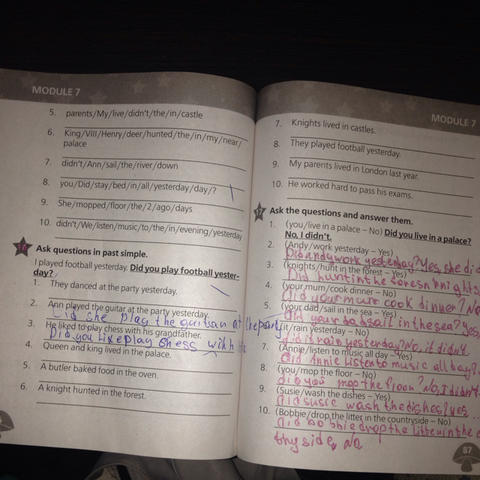 MODULE 7
5. parents/My/live/didn't/the/in/castle
6. King/VIII/Henry/deer/hunted/the/in/my/near/
palace
7. didn't/Ann/sail/the/river/down
8. you/Did/stay/bed/in/all/yesterday/day/?
9. She/mopped/floor/the/2/ago/days
10. didn't/We/listen/music/to/the/in/evening/yesterday
Ask questions in past simple.
I played football yesterday. Did you play football yester-
day?
1. They danced at the party yesterday.
2. Ann played the guitar at the party yesterday.
Did she play the guitar at the party
3. He liked to play chess with his grandfather.
Did you like play shess with
4. Queen and king lived in the palace.
5. A butler baked food in the oven.
6. A knight hunted in the forest.
MODULE 7
7. Knights lived in castles.
8. They played football yesterday.
9. My parents lived in London last year.
10. He worked hard to pass his exams.
17 Ask the questions and answer them.
1. (you/live in a palace – No) Did you live in a palace?
No, I didn't.
2. (Andy/work yesterday – Yes)
Did andy work yesterday? Yes, she did
3. (knights/hunt in the forest – Yes)
Did hunt in the knights
4. (your mum/cook dinner – No)
Did your mum cook dinner? No
5. (your dad/sail in the sea – Yes)
Did your sail in the sea? Yes,
(it/rain yesterday – No)
Did it rain yesterday? No, it didn't
7. (Annie/listen to music all day – Yes)
Did Annie listen to music all day?
8. (you/mop the floor – No)
did you mop the floor? No, I didn't
9. (Susie/wash the dishes – Yes)
did susie wash the dishes? yes
10. (Bobbie/drop the litter in the countryside – No)
did bobbie drop the litter in the
try side, No
87